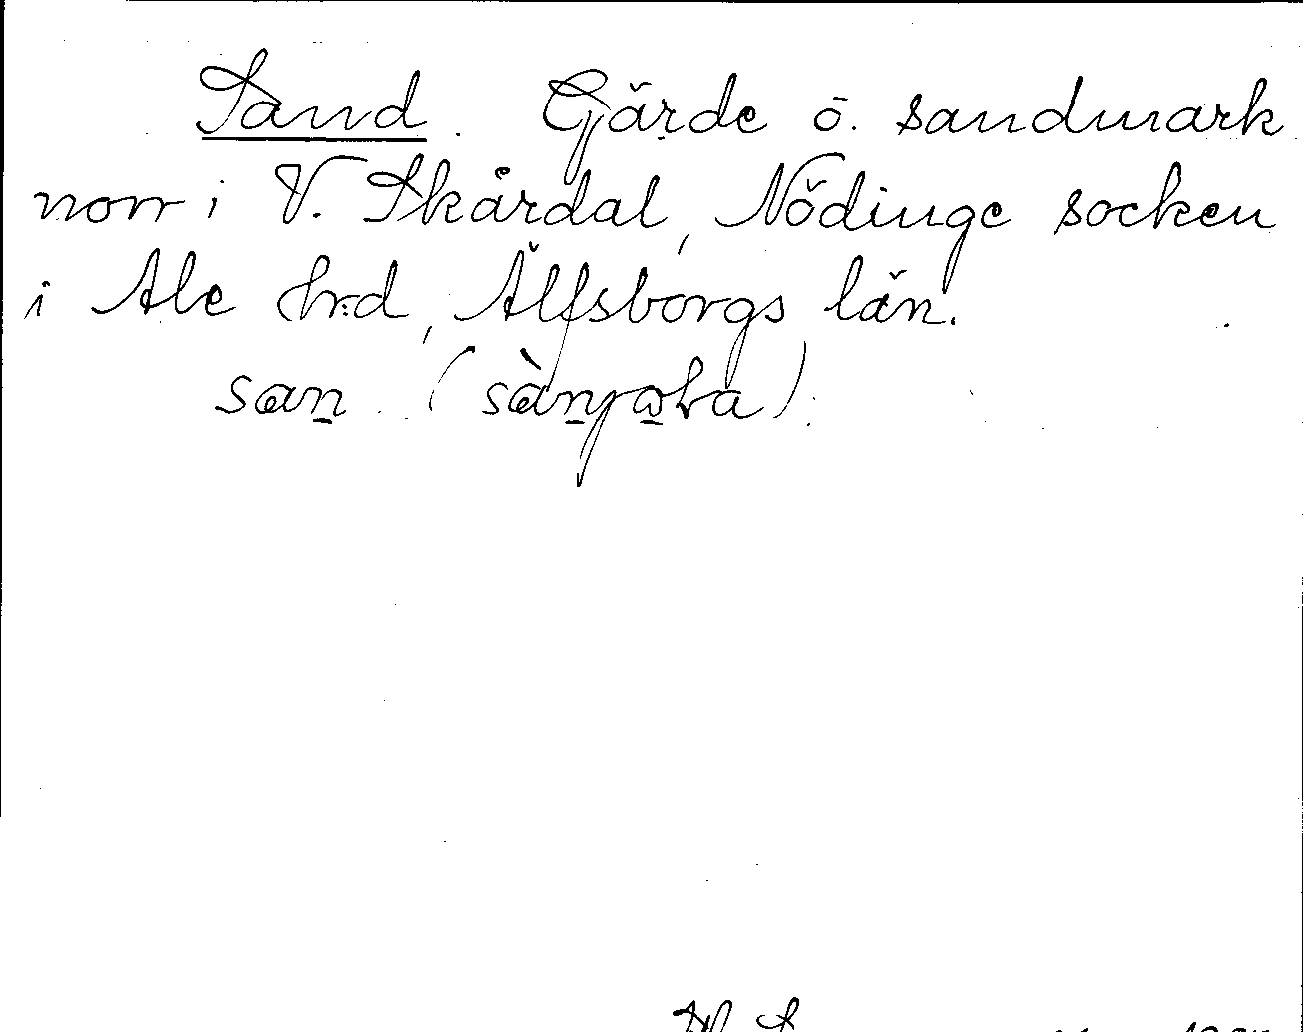 Sand. Gärde o. sandmark
norr i V. Skårdal, Nödinge socken
i Ale hrd, Älfsborgs län.
san